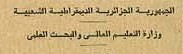 الجمهورية الجزائرية الديمقراطية الشعبية
وزارة التعليم العالي والبحث العلمي